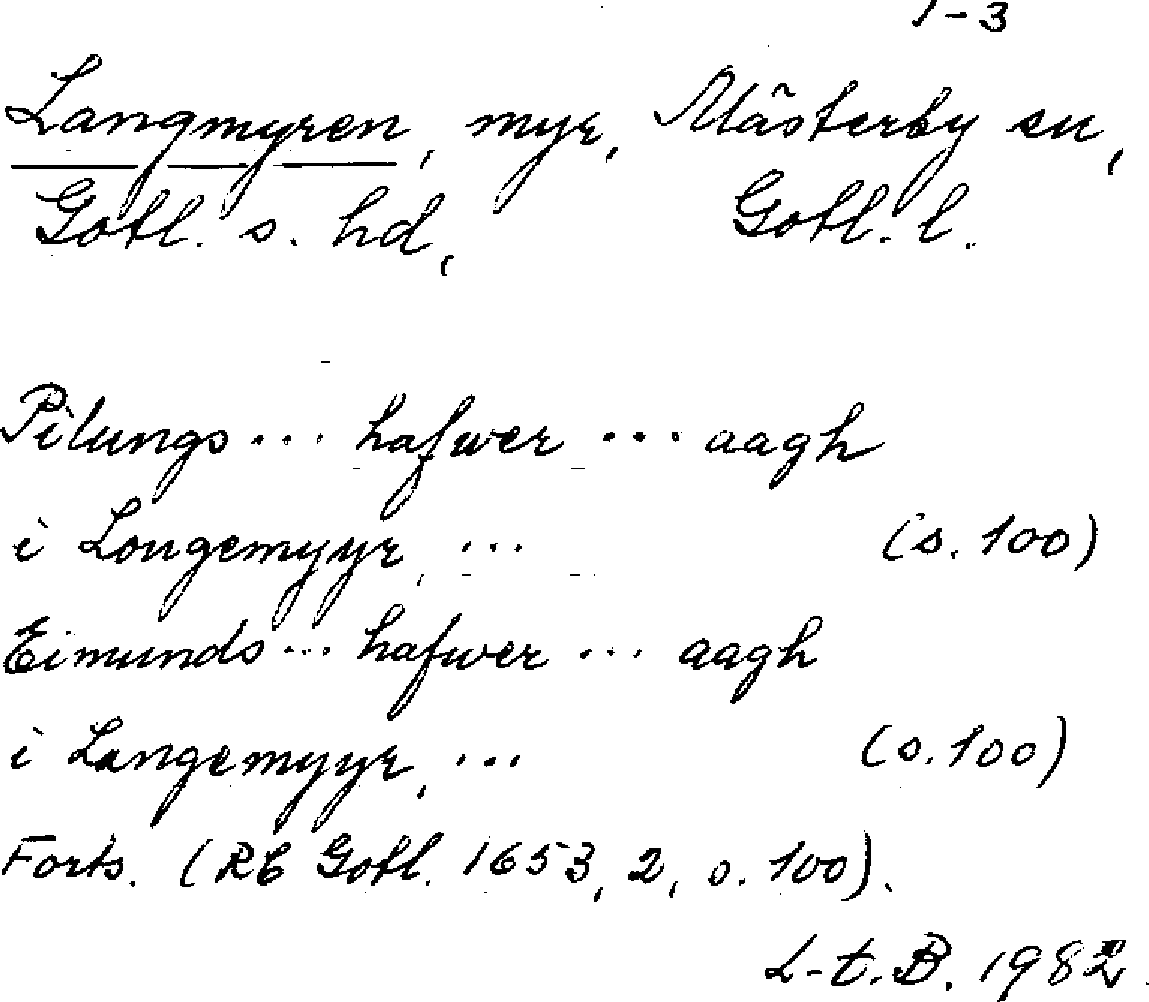 1-3
Langmyren, myr, Mästerby sn,
Gotl. s. hd, Gotl. l.
Pilungs ... hafwer ... aagh
i Longemyyr, ... (s. 100)
Eimunds ... hafwer ... aagh
i Langemyyr, ... (s. 100)
Forts. (RB Gotl. 1653, 2, s. 100).
L-t.B. 1982.